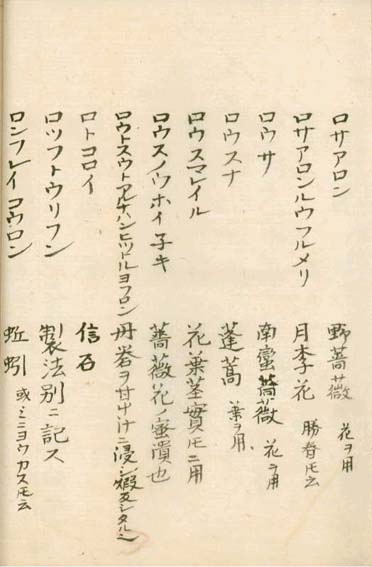 ロサアロン 野薔薇 花ヲ用
ロサアロンルウフルメリ 月季花 勝春トモ云
ロウサ 南蛮薔薇 花ヲ用
ロウスナ 蓬蒿 葉ヲ用
ロウスマレイル 花葉茎實トモニ用
ロウスノウホイ子キ 薔薇花ノ蜜漬也
ロウトスウトアルケハンヒツトルヨフロン 丹礬ヲ廿中ケニ浸シ煆
ロトコロイ 信石
ロツフトウリフン 製法別ニ記ス
ロンフレイコウロン 蚯蚓 或ミニヨウカストモ云